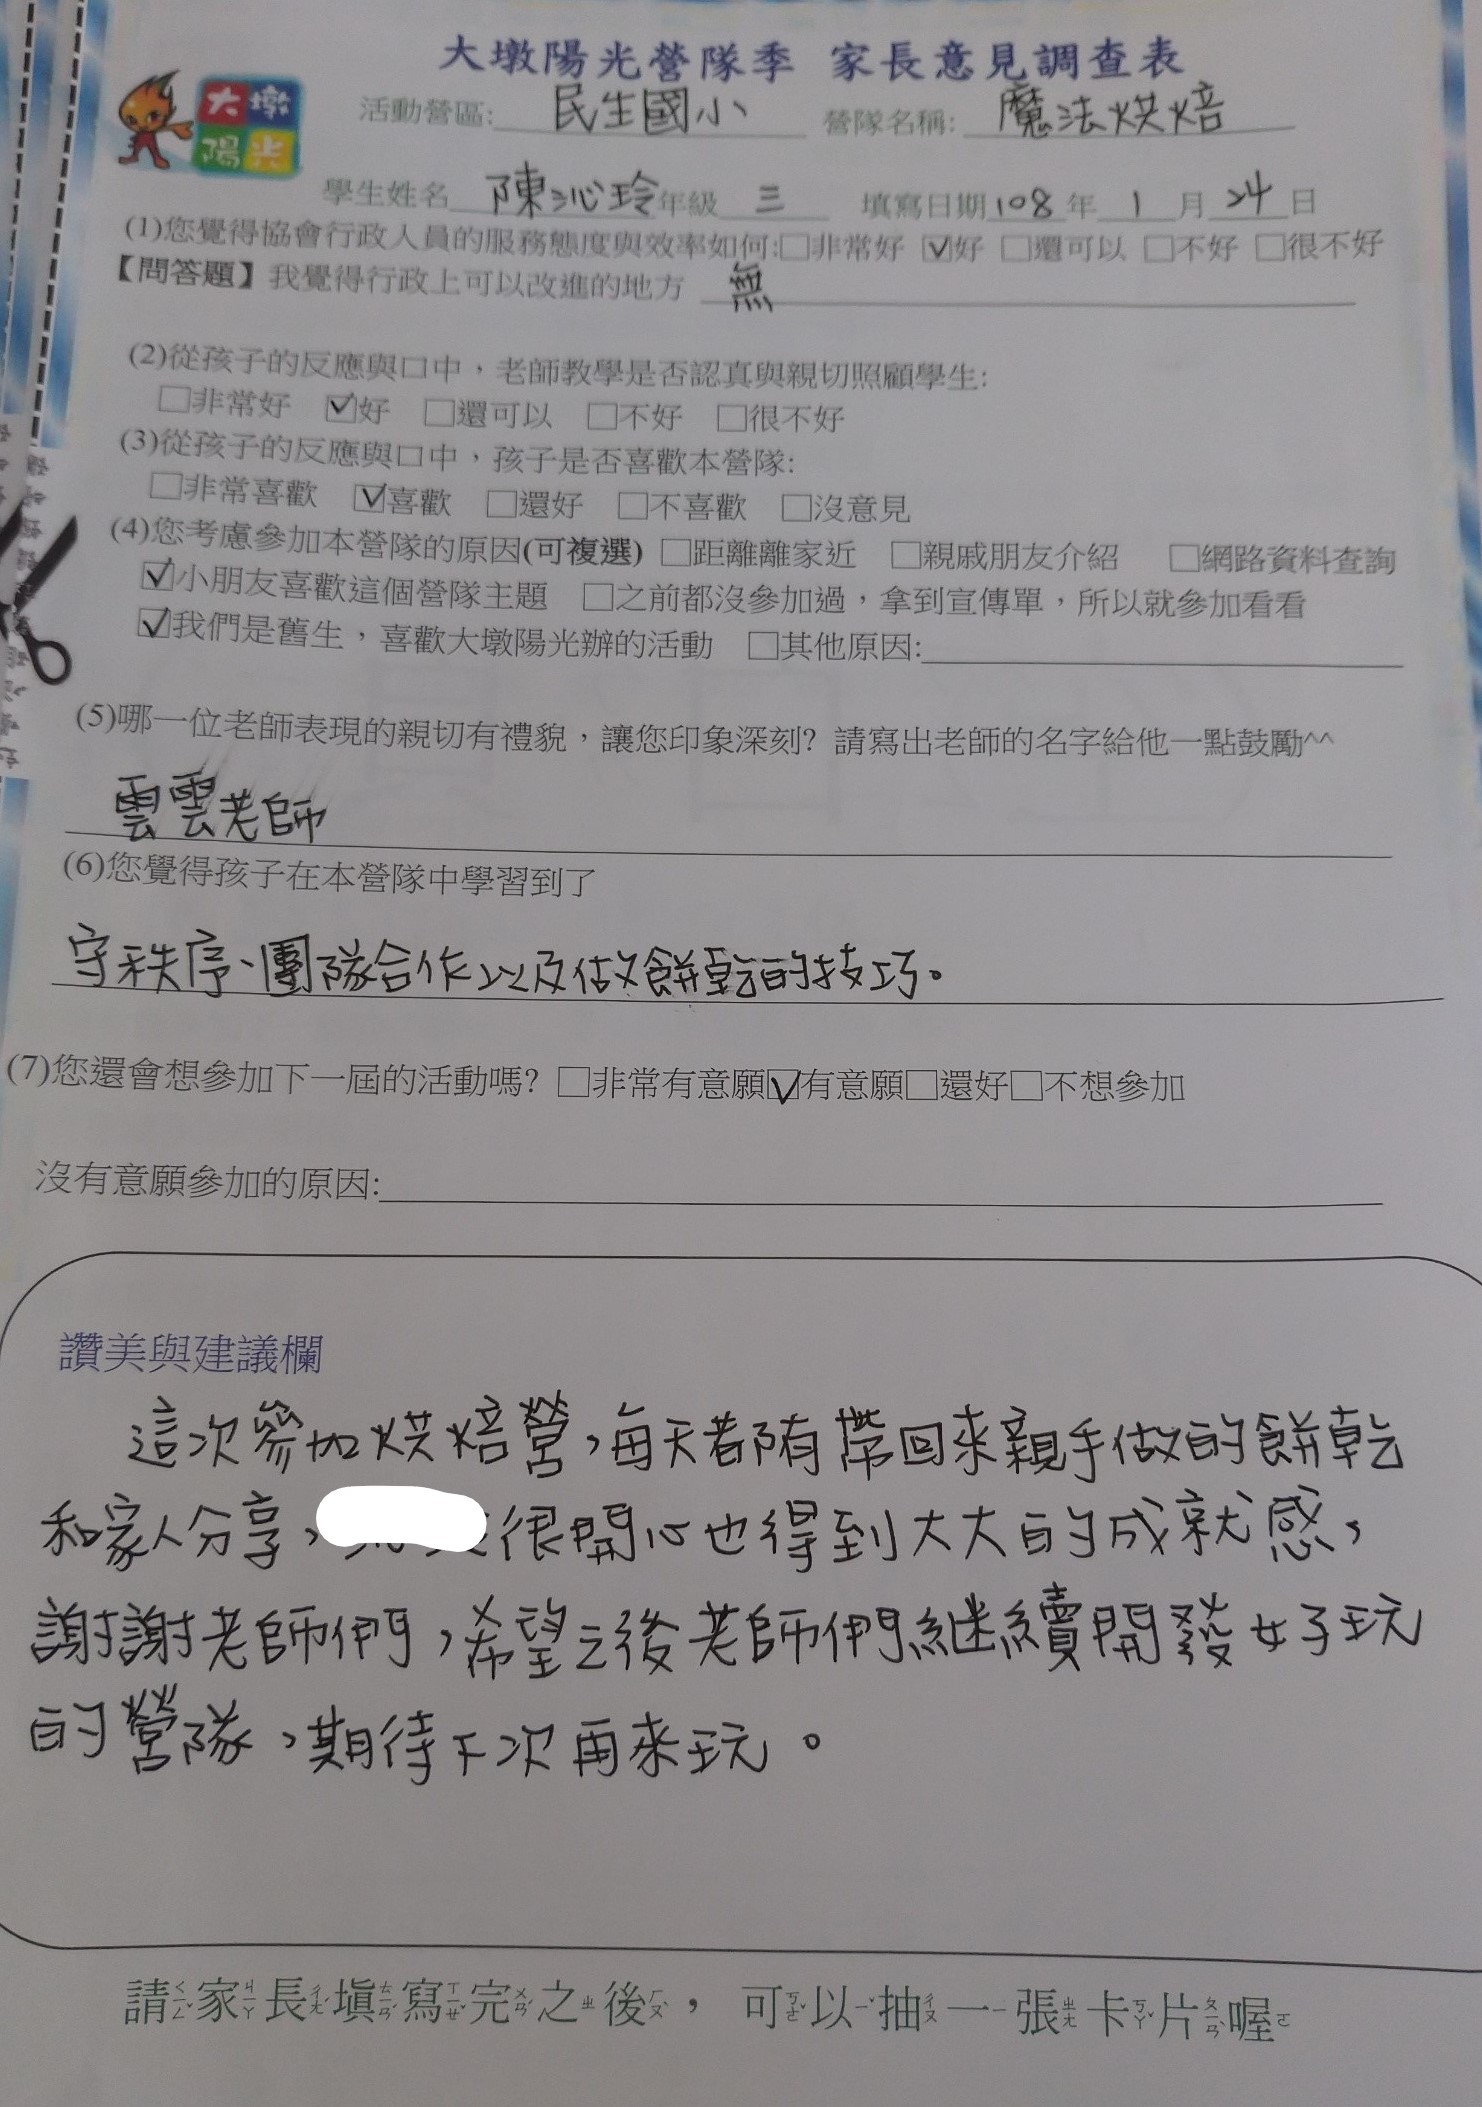 大墩陽光營隊季 家長意見調查表
大墩
陽光
活動營區:民生國小 營隊名稱:魔法烘焙
學生姓名 陳沁玲 年級 三 填寫日期 108 年 1 月 24 日
(1)您覺得協會行政人員的服務態度與效率如何:□非常好 ☑好 □還可以 □不好 □很不好
【問答題】我覺得行政上可以改進的地方 無
(2)從孩子的反應與口中，老師教學是否認真與親切照顧學生:
□非常好 ☑好 □還可以 □不好 □很不好
(3)從孩子的反應與口中，孩子是否喜歡本營隊:
□非常喜歡 ☑喜歡 □還好 □不喜歡 □沒意見
(4)您考慮參加本營隊的原因(可複選) □距離離家近 □親戚朋友介紹 □網路資料查詢
☑小朋友喜歡這個營隊主題 □之前都沒參加過，拿到宣傳單，所以就參加看看
☑我們是舊生，喜歡大墩陽光辦的活動 □其他原因:
(5)哪一位老師表現的親切有禮貌，讓您印象深刻? 請寫出老師的名字給他一點鼓勵^^
雲雲老師
(6)您覺得孩子在本營隊中學習到了
守秩序、團隊合作以及做餅乾的技巧。
(7)您還會想參加下一屆的活動嗎? □非常有意願☑有意願□還好□不想參加
沒有意願參加的原因:
讚美與建議欄
這次參加烘焙營，每天都有帶回來親手做的餅乾
和家人分享，很開心也得到大大的成就感，
謝謝老師們，希望之後老師們繼續開發好玩
的營隊，期待下次再來玩。
請家長填寫完之後，可以抽一張卡片喔